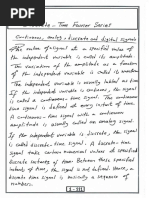 Discrete - Time Fourier Series
Continuous, analog, discrete and digital signals
The value of a signal at a specified value of
the independent variable is called its amplitude.
The variation of the amplitude as a function of
the independent variable is called its waveform.
The independent variable is usually
time. If the independent variable is continuous, the signal
is called a continuous-time signal. The continuous-
time signal is defined at every instant of time.
A continuous-time signal with a continuous
amplitude is usually called an analog signal.
If the independent variable is discrete, the signal
is called a discrete-time signal. A discrete-time
signal takes certain numerical values at specified
discrete instants of time. Between these specified
instants of time, the signal is not defined. Hence, a
discrete-time signal is basically a sequence of
numbers.